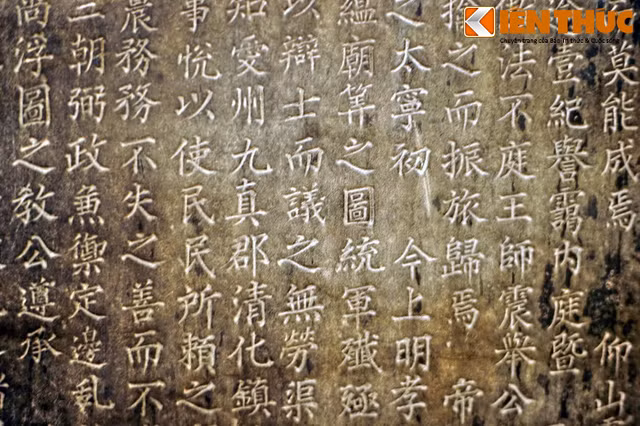 KIẾN THỨC
莫能成焉 仰山
宦紀譽靄內庭暨
法不庭王師震舉公
之而振旅歸焉 帝
之太寧初 今上明孝
縕廟筭之圖統軍殲殛
以辯士而議之無勞渠
知交州九真郡清化鎮
事悅以使民民所賴之
晨務務不失之善而不
三朝弼政兼禦定邊亂
尚浮圖之教公遵承